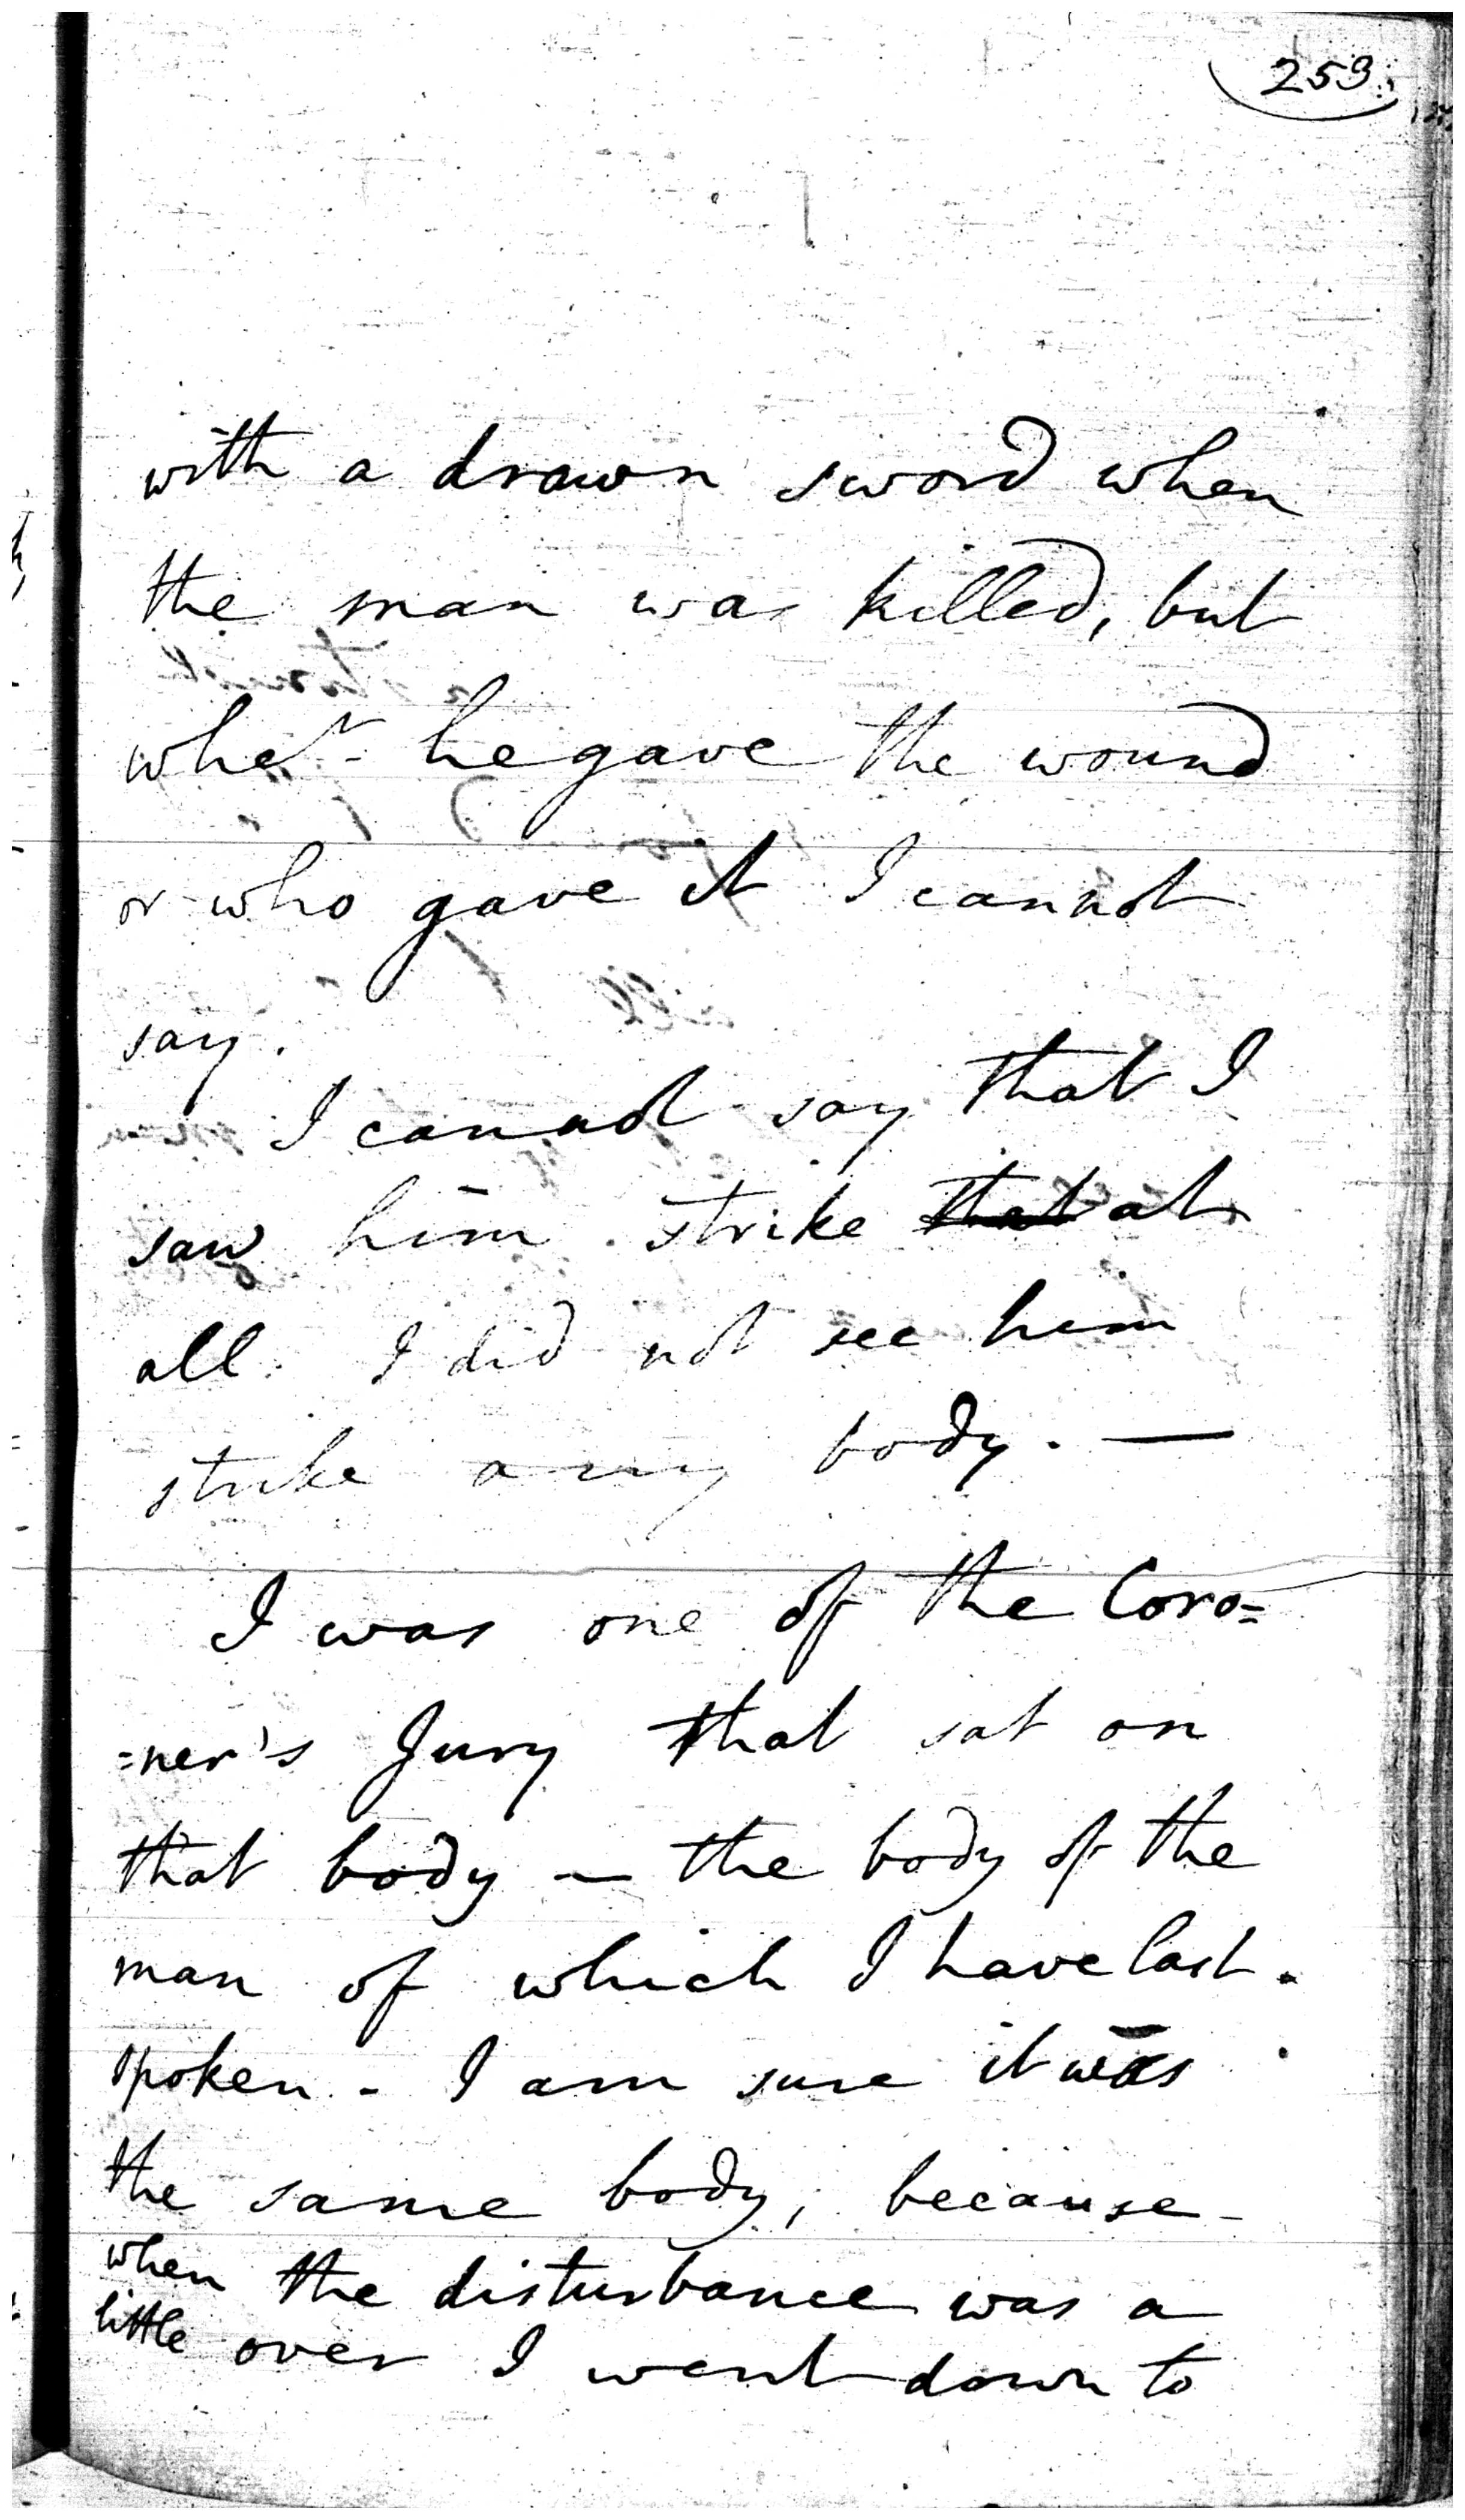 259
with a drawn sword when
the man was killed, but
whe^r he gave the wound
or who gave it I cannot
say.
I cannot say that I
saw him strike ~~that~~ at
all. I did not see him
strike any body. —
I was one of the Coro=
=ner's Jury that sat on
that body — the body of the
man of which I have last
spoken - I am sure it was
the same body, because
when the disturbance was a
little over I went down to